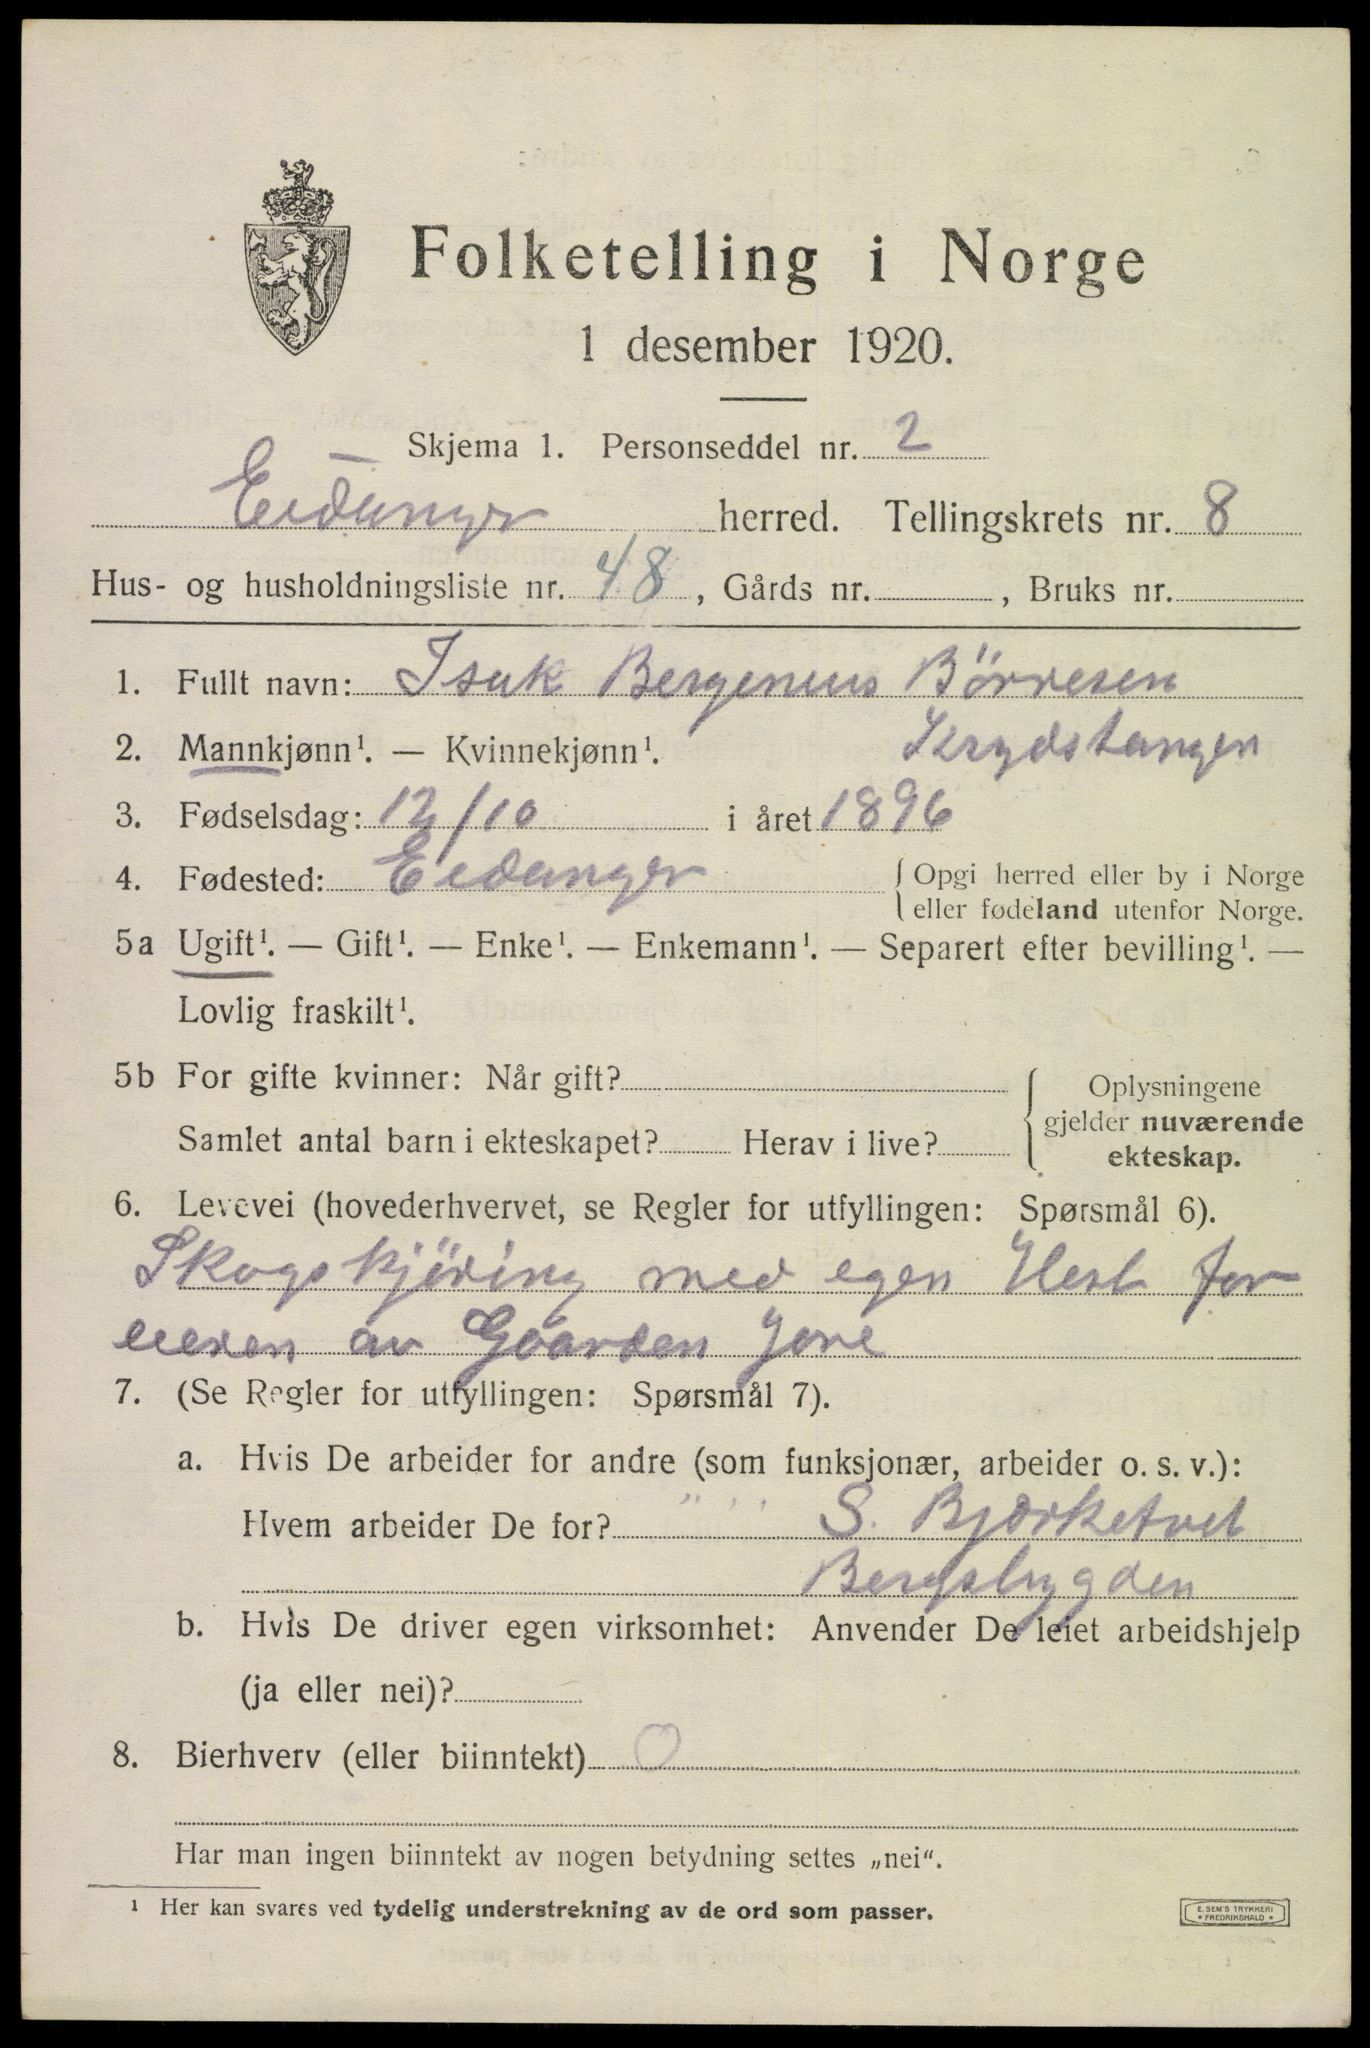 Folketelling i Norge
1 desember 1920.
Skjema 1. Personseddel nr. 2
Eidanger herred. Tellingskrets nr. 8
Hus- og husholdningsliste nr. 48, Gårds nr. , Bruks nr.
1. Fullt navn: Isak Bergenius Börresen
2. Mannkjønn¹. — Kvinnekjønn¹. Krydstangen
3. Fødselsdag: 12/10 i året 1896
4. Fødested: Eidanger { Opgi herred eller by i Norge
eller fødeland utenfor Norge.
5a Ugift¹. — Gift¹. — Enke¹. — Enkemann¹. — Separert efter bevilling¹. —
Lovlig fraskilt¹.
5b For gifte kvinner: Når gift? { Oplysningene
Samlet antal barn i ekteskapet? Herav i live? gjelder nuværende
ekteskap.
6. Levevei (hovederhvervet, se Regler for utfyllingen: Spørsmål 6).
Skogskjöring med egen Hest for
eieren av Gaarden
7. (Se Regler for utfyllingen: Spørsmål 7).
a. Hvis De arbeider for andre (som funksjonær, arbeider o. s. v.):
Hvem arbeider De for? S. Bjørketvet
Bergsbygden
b. Hvis De driver egen virksomhet: Anvender De leiet arbeidshjelp
(ja eller nei)?
8. Bierhverv (eller biinntekt) 0
Har man ingen biinntekt av nogen betydning settes „nei“.
¹ Her kan svares ved tydelig understrekning av de ord som passer.
E. SEM'S TRYKKERI
• FREDRIKSHALD •